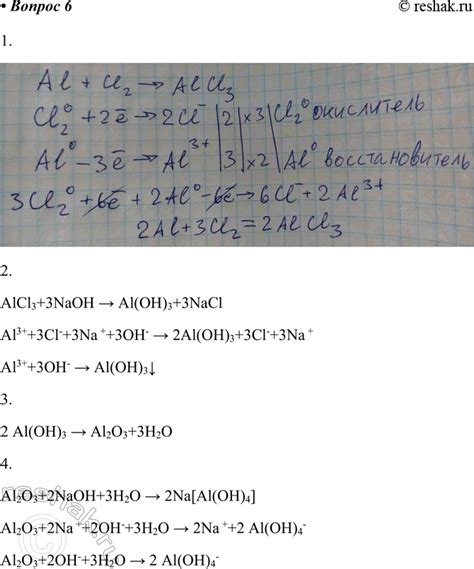 • Вопрос 6 © reshak.ru
1.
Al + Cl₂ → AlCl₃
Cl₂⁰ + 2ē → 2Cl⁻ |2|×3| Cl₂⁰ окислитель
Al⁰ - 3ē → Al³⁺ |3|×2| Al⁰ восстановитель
3Cl₂⁰ + 6ē + 2Al⁰ - 6ē → 6Cl⁻ + 2Al³⁺
2Al + 3Cl₂ = 2AlCl₃
2.
AlCl₃+3NaOH → Al(OH)₃+3NaCl
Al³⁺+3Cl⁻+3Na⁺+3OH⁻ → 2Al(OH)₃+3Cl⁻+3Na⁺
Al³⁺+3OH⁻ → Al(OH)₃↓
3.
2 Al(OH)₃ → Al₂O₃+3H₂O
4.
Al₂O₃+2NaOH+3H₂O → 2Na[Al(OH)₄]
Al₂O₃+2Na⁺+2OH⁻+3H₂O → 2Na⁺+2 Al(OH)₄⁻
Al₂O₃+2OH⁻+3H₂O → 2 Al(OH)₄⁻
reshak.ru